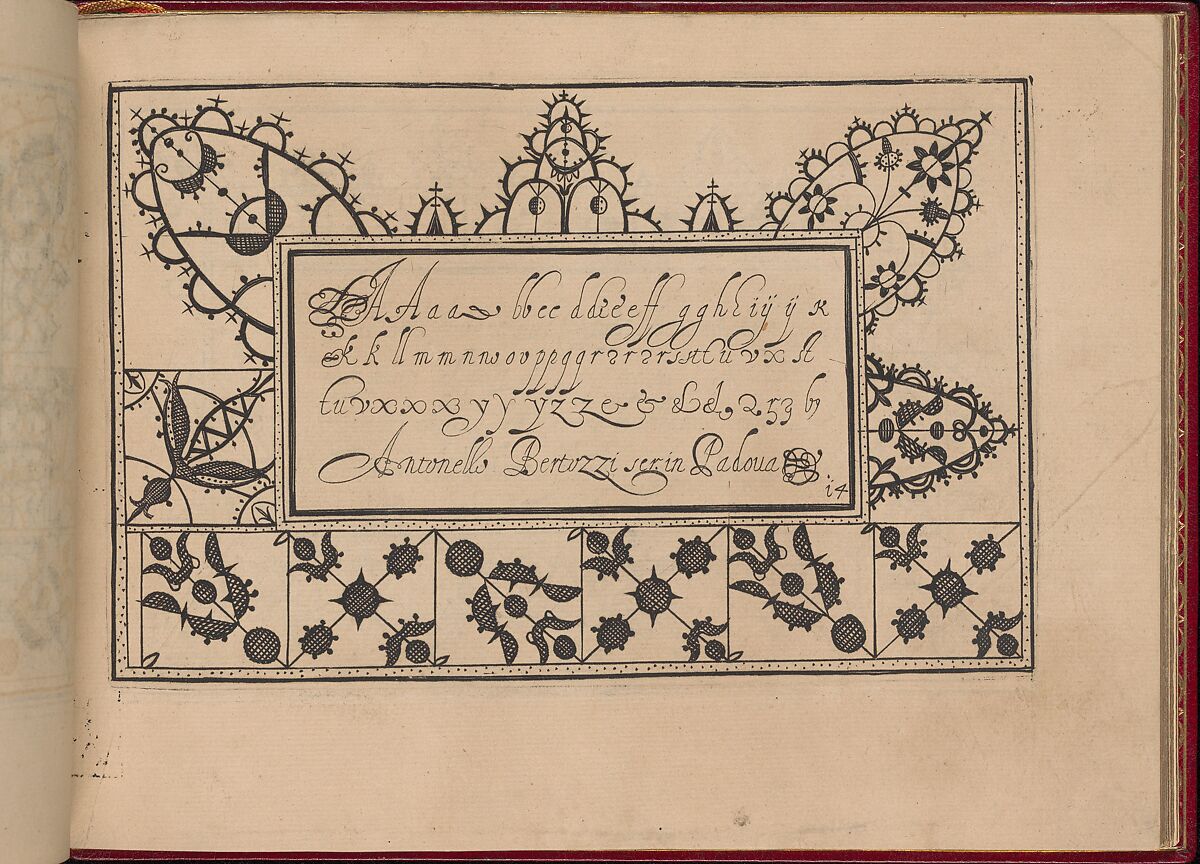 A A A a a bb cc d d e e e ff g g h h i ij ij k
k k ll m m n n w o v p p g g r r r r s s tt u v x st
t u v x x x x y y y z z & & & &, 2 53 by
Antonello Bertozzi scr. in Padoua
14